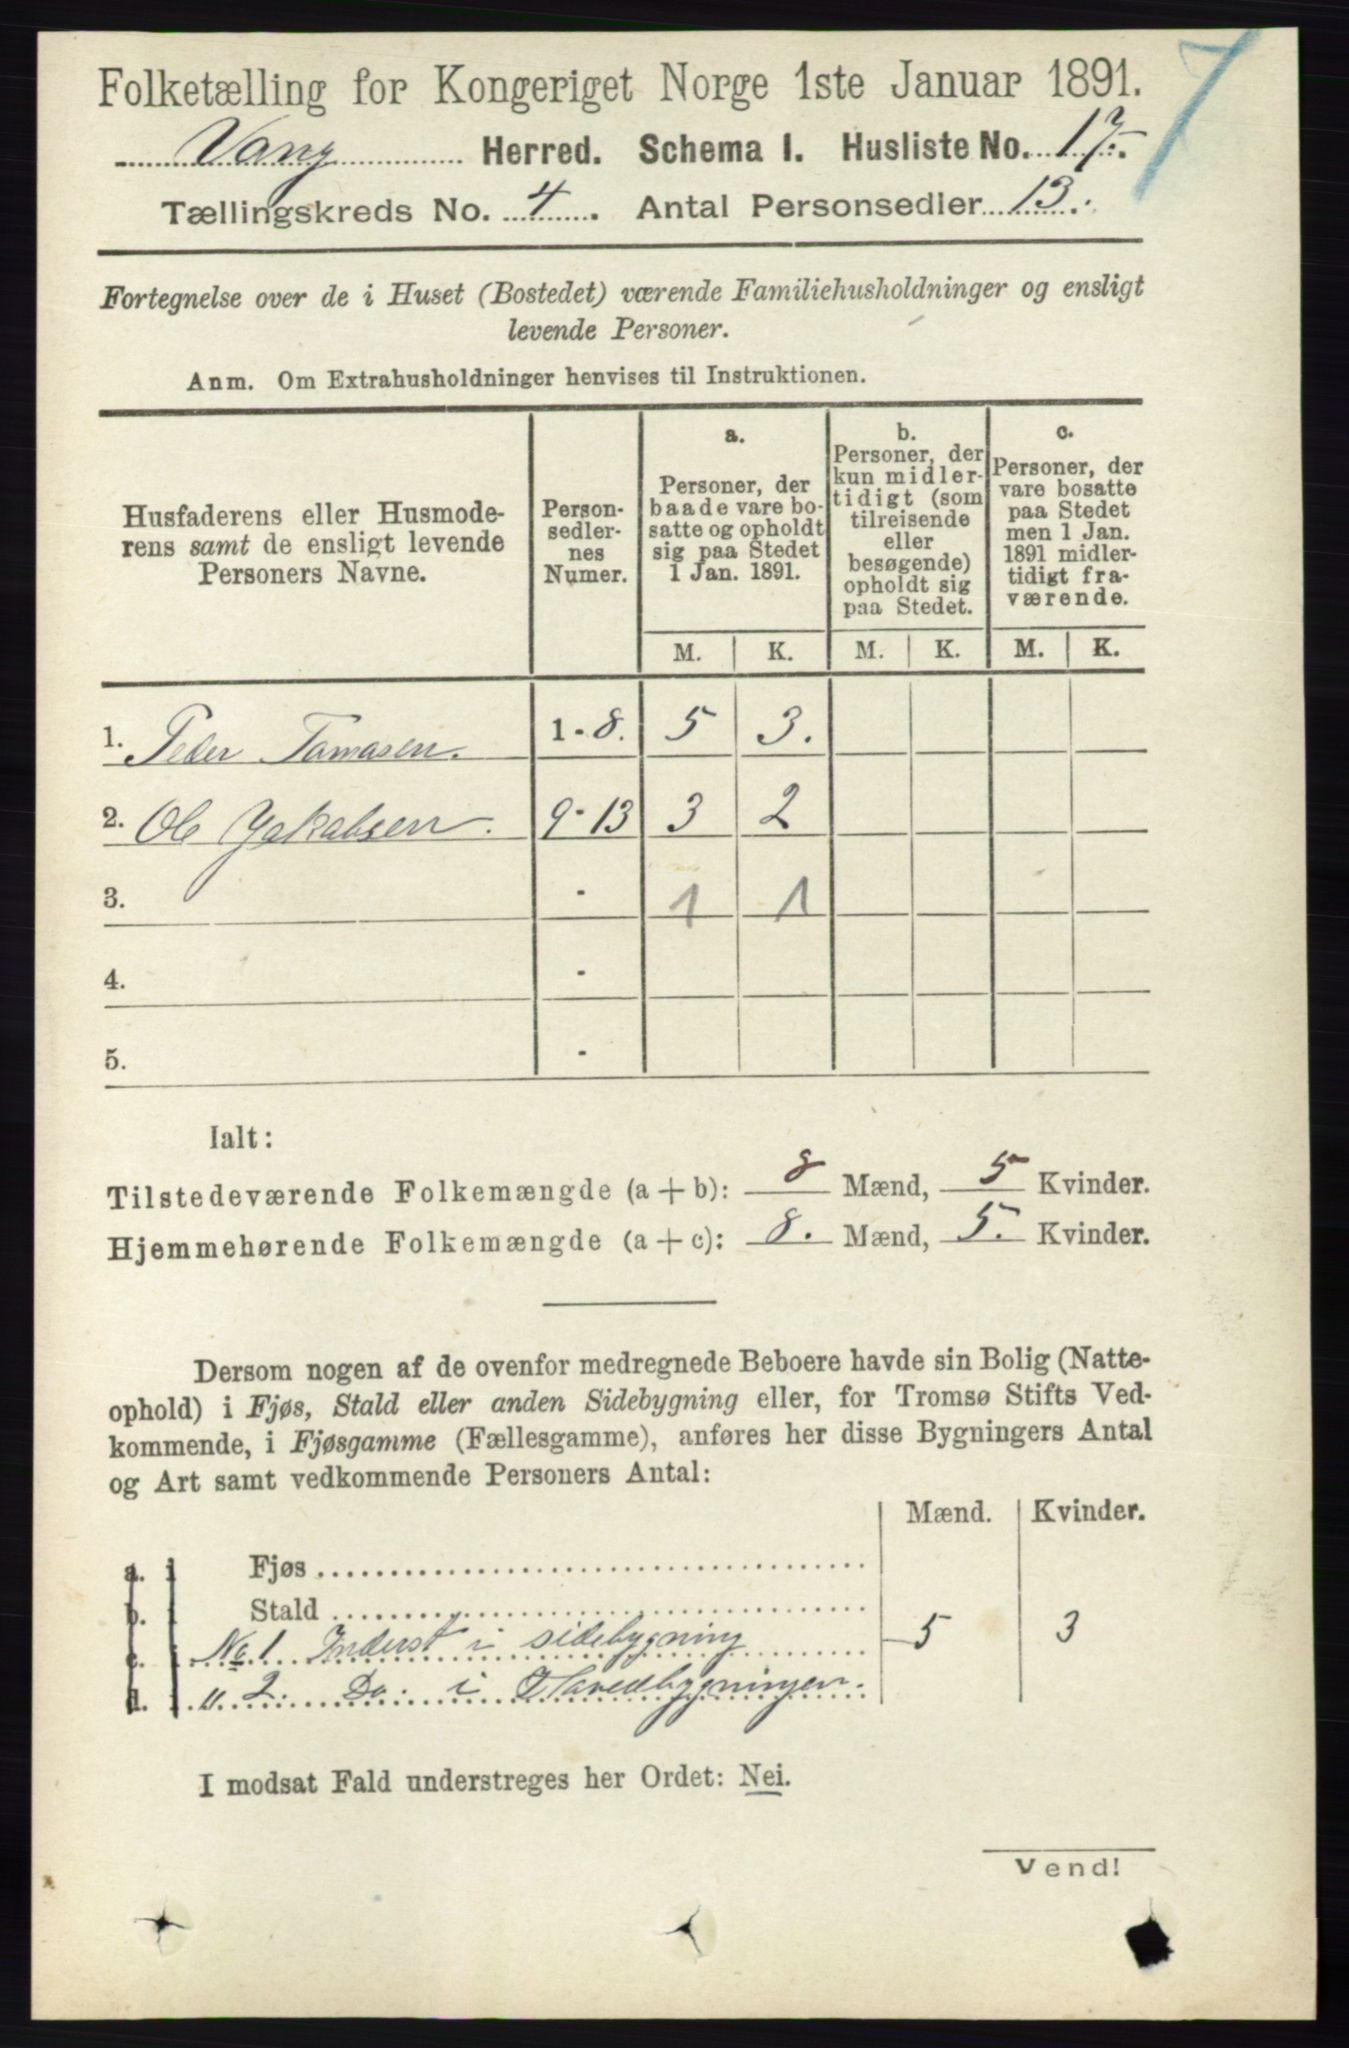 7
Folketælling for Kongeriget Norge 1ste Januar 1891.
Vang Herred. Schema I. Husliste No. 17.
Tællingskreds No. 4. Antal Personsedler 13.
Fortegnelse over de i Huset (Bostedet) værende Familiehusholdninger og ensligt
levende Personer.
Anm. Om Extrahusholdninger henvises til Instruktionen.
Husfaderens eller Husmode-
rens samt de ensligt levende
Personers Navne.
Person-
sedler-
nes
Numer.
a.
Personer, der
baade vare bo-
satte og opholdt
sig paa Stedet
1 Jan. 1891.
b.
Personer, der
kun midler-
tidigt (som
tilreisende
eller
besøgende)
opholdt sig
paa Stedet.
c.
Personer, der
vare bosatte
paa Stedet
men 1 Jan.
1891 midler-
tidigt fra-
værende.
M. K. M. K. M. K.
1. Peder Tomasen. 1-8. 5 3.
2. Ole Jakabsen. 9-13 3 2
3. - 1 1
4. -
5. -
Ialt:
Tilstedeværende Folkemængde (a + b): 8 Mænd, 5 Kvinder.
Hjemmehørende Folkemængde (a + c): 8. Mænd, 5. Kvinder.
Dersom nogen af de ovenfor medregnede Beboere havde sin Bolig (Natte-
ophold) i Fjøs, Stald eller anden Sidebygning eller, for Tromsø Stifts Ved-
kommende, i Fjøsgamme (Fællesgamme), anføres her disse Bygningers Antal
og Art samt vedkommende Personers Antal:
Mænd. Kvinder.
a. i Fjøs
b. i Stald
c. i No. 1 Inderst i sidebygning 5 3
d. i " 2. Do. i Havedbygningen.
I modsat Fald understreges her Ordet: Nei.
Vend!